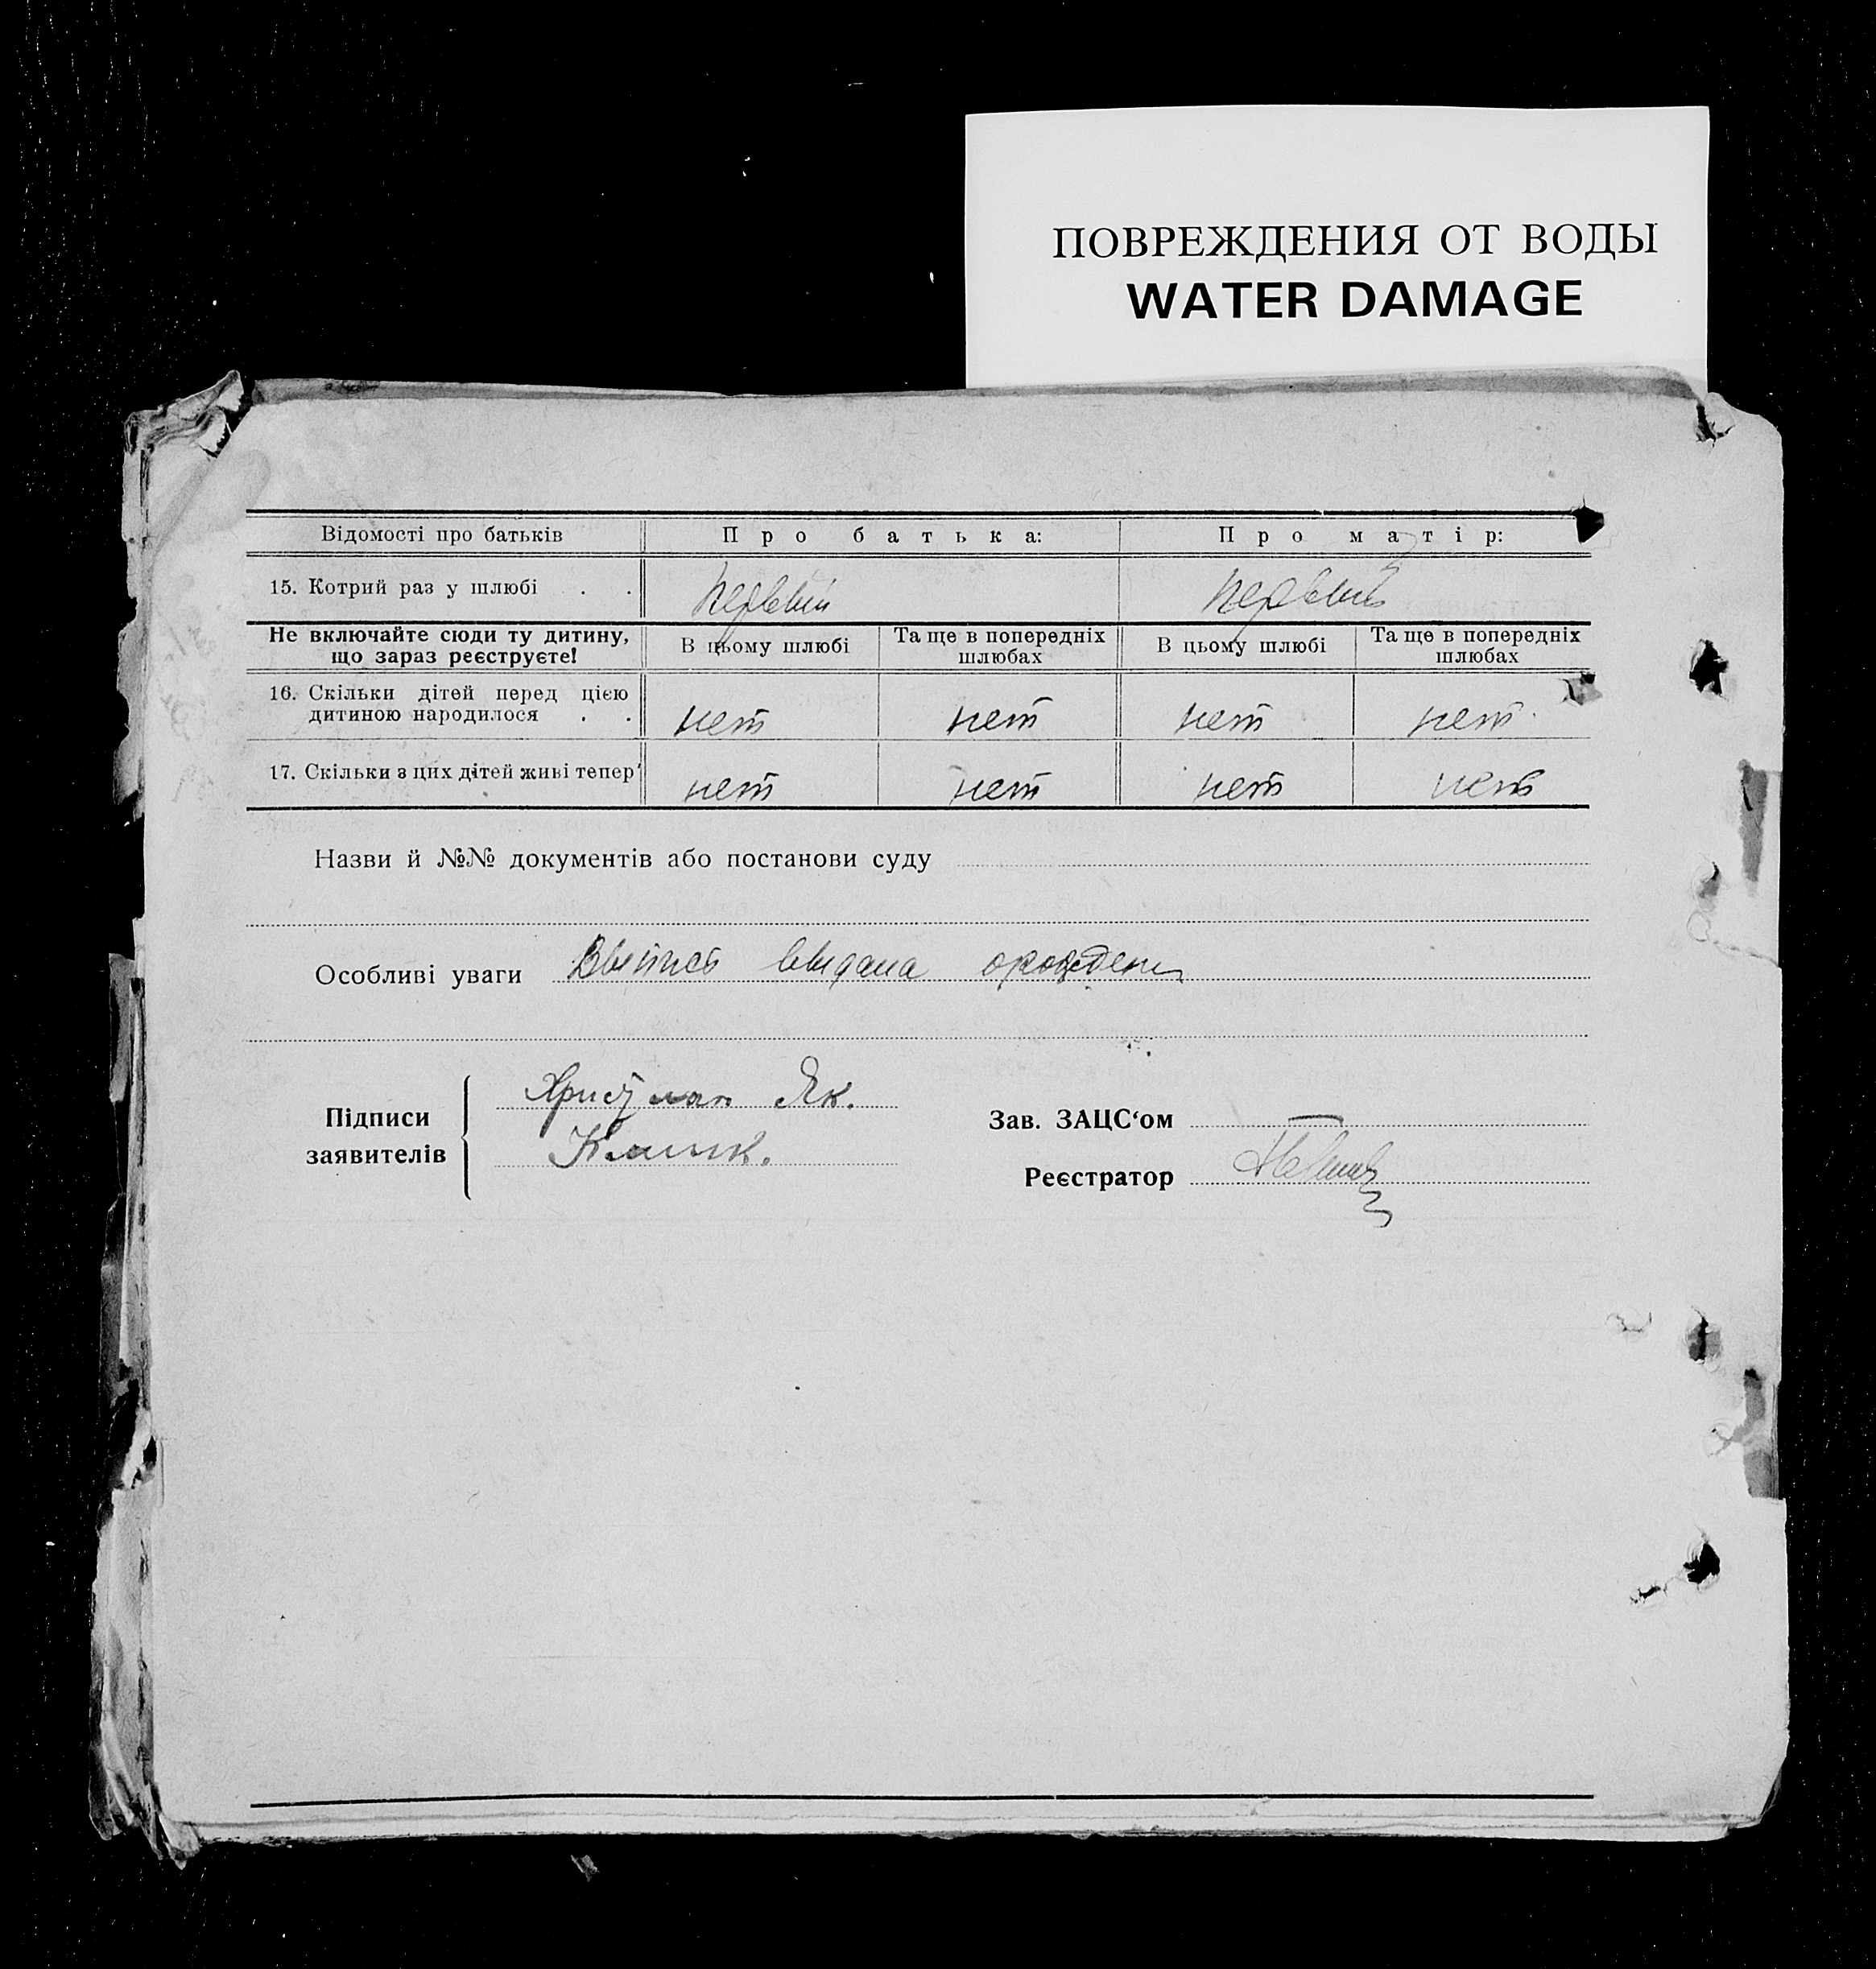 ПОВРЕЖДЕНИЯ ОТ ВОДЫ
WATER DAMAGE
Відомості про батьків Про батька: Про матір:
15. Котрий раз у шлюбі . . первый первый
Не включайте сюди ту дитину, що зараз реєструєте! В цьому шлюбі Та ще в попередніх шлюбах В цьому шлюбі Та ще в попередніх шлюбах
16. Скільки дітей перед цією
дитиною народилося . . нет нет нет нет
17. Скільки з цих дітей живі тепер нет нет нет нет
Назви й №№ документів або постанови суду
Особливі уваги Выпись выдана
Підписи заявителів Як.
Зав. ЗАЦС‘ом
Реєстратор